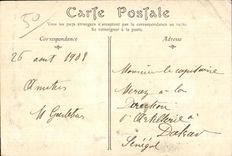 50
Carte Postale
Tous les pays étrangers n'acceptent pas la correspondance au recto.
Se renseigner à la poste.
Correspondance
Adresse
26 août 1908
Amitiés
Monsieur le capitaine
à la
Direction
d'Artillerie à
Dakar
Sénégal